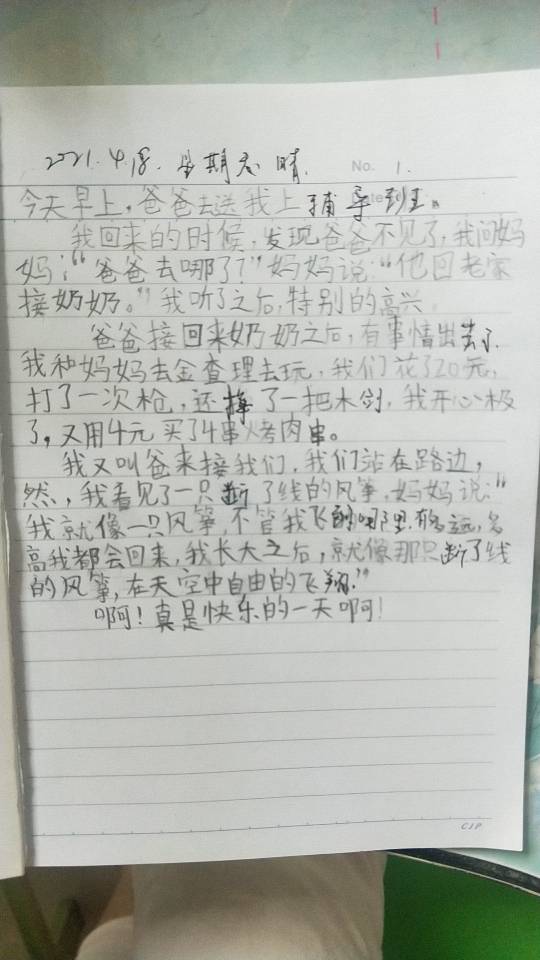 2021.4.18. 星期 晴.
No. 1.
今天早上，爸爸去送我上辅导班。
我回来的时候，发现爸爸不见了，我问妈
妈：“爸爸去哪了？”妈妈说：“他回老家
接奶奶。”我听了之后，特别的高兴.
爸爸接回来奶奶之后，有事情出去了.
我和妈妈去金查理去玩，我们花了20元，
打了一次枪，还 了一把木剑，我开心极
了，又用4元买了4串烤肉串。
我又叫爸来接我们，我们站在路边，
然，我看见了一只断了线的风筝，妈妈说：“
我就像一只风筝，不管我飞的哪里 远，多
高我都会回来，我长大之后，就像那只断了线
的风筝，在天空中自由的飞翔.”
啊！真是快乐的一天啊！
CIP